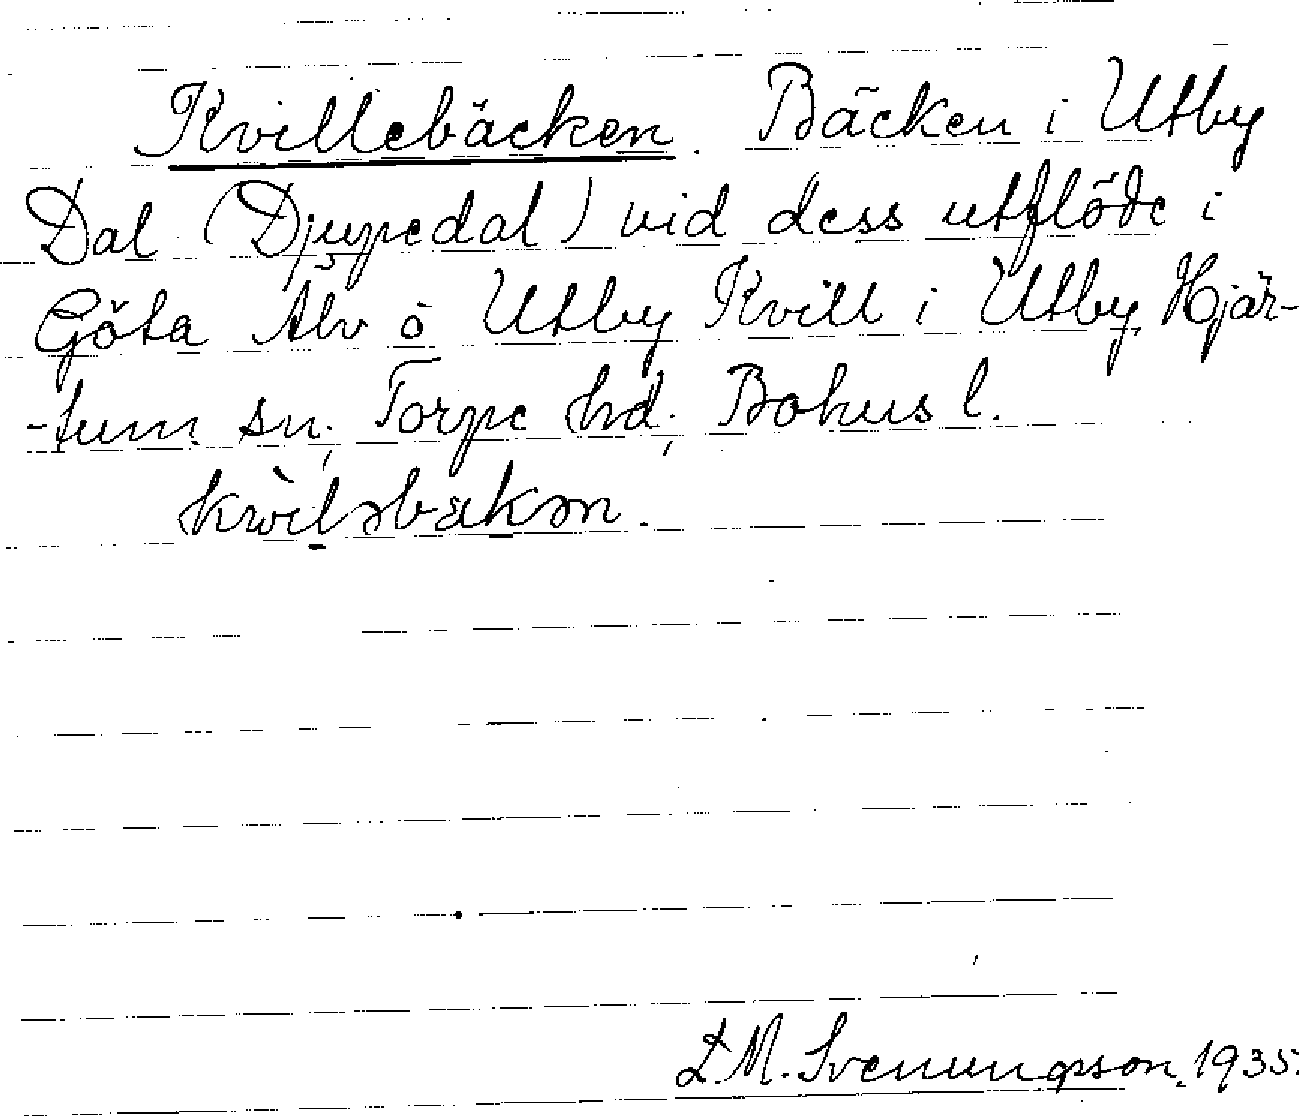 Kvillebäcken. Bäcken i Utby
Dal (Djupedal) vid dess utflöde i
Göta Älv ö Utby Kvill i Utby, Hjär-
-tum sn; Torpe hd; Bohus l.
kwìləbäkən.
L.M. Svenungsson. 1935.